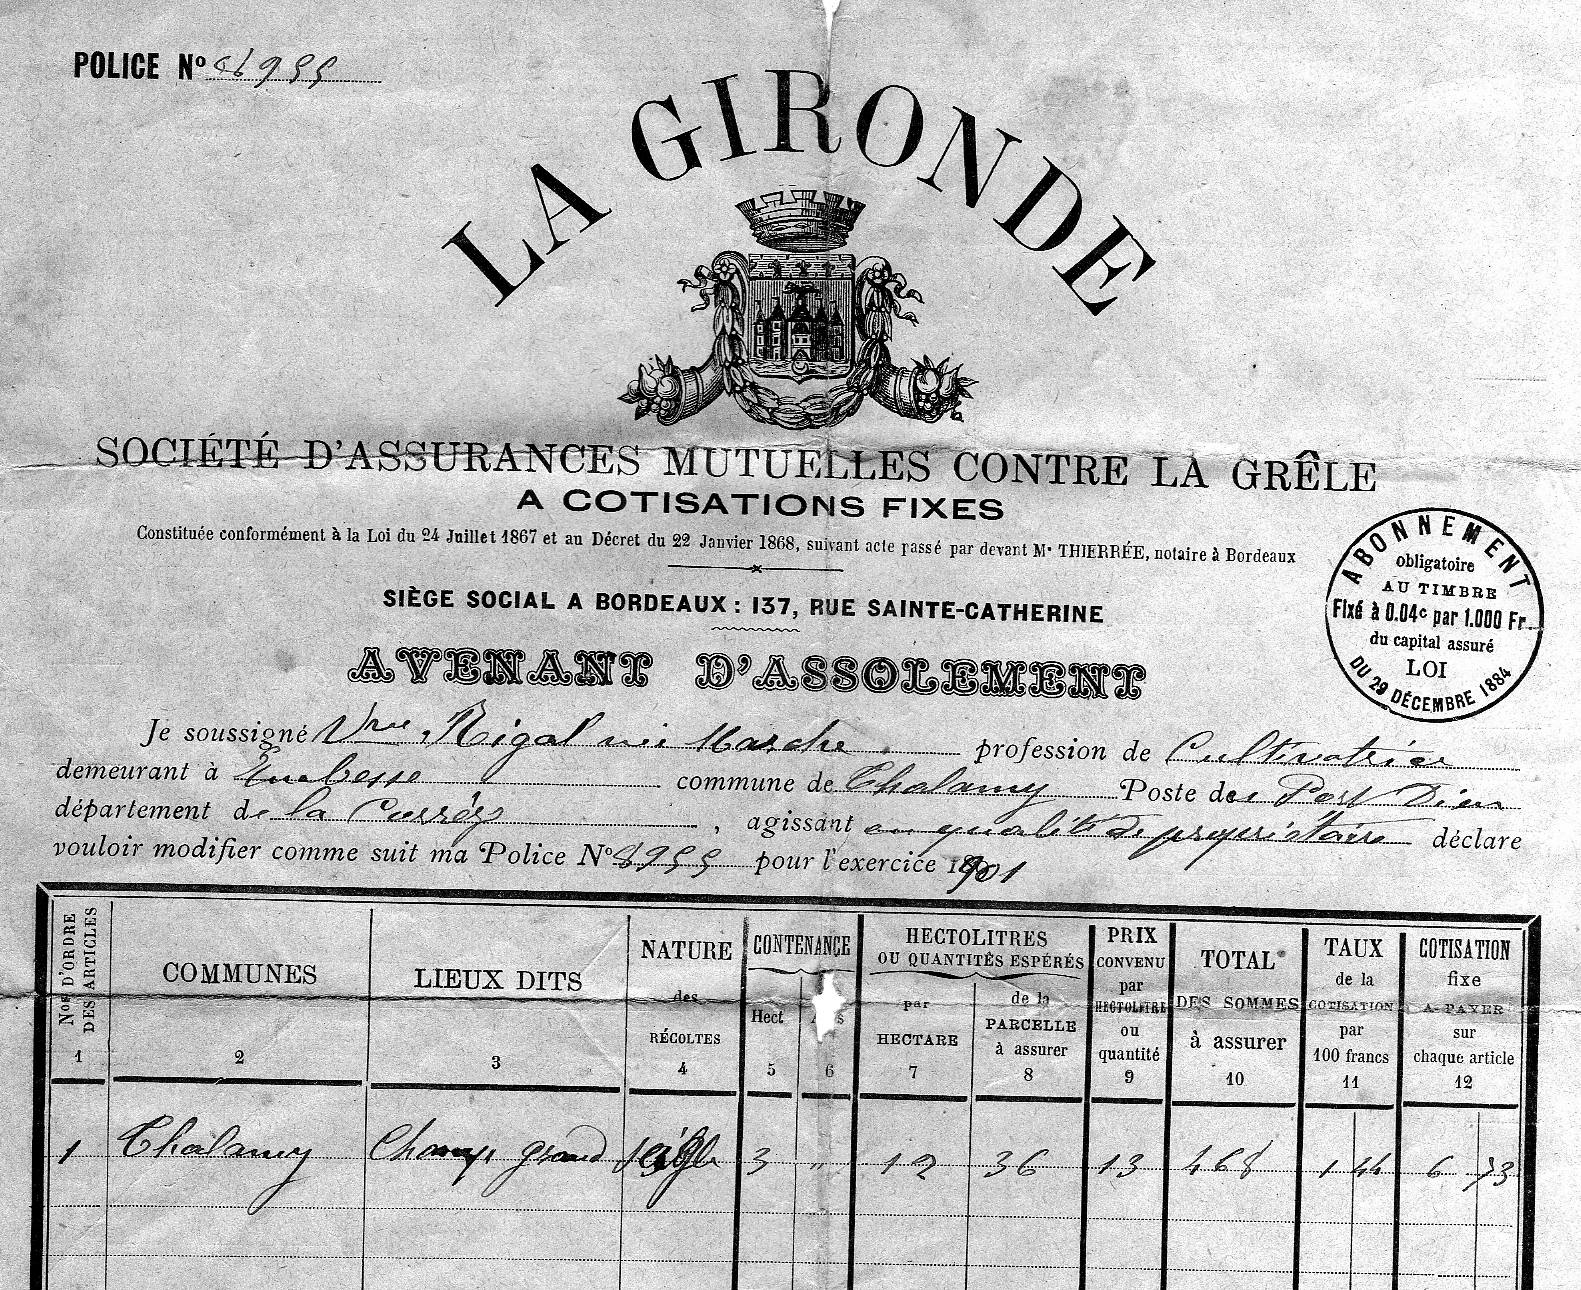 POLICE Nº 8955
LA GIRONDE
SOCIÉTÉ D'ASSURANCES MUTUELLES CONTRE LA GRÊLE
A COTISATIONS FIXES
Constituée conformément à la Loi du 24 Juillet 1867 et au Décret du 22 Janvier 1868, suivant acte passé par devant Me THIERRÉE, notaire à Bordeaux
SIÈGE SOCIAL A BORDEAUX : 137, RUE SAINTE-CATHERINE
ABONNEMENT
obligatoire
AU TIMBRE
Fixé à 0.04c par 1.000 Fr.
du capital assuré
LOI
DU 29 DÉCEMBRE 1884
AVENANT D'ASSOLEMENT
Je soussigné Vve Rigal née Masche profession de Cultivatrice
demeurant à commune de Thalamy Poste de Port Dieu
département de la Corrèze, agissant en qualité de propriétaire déclare
vouloir modifier comme suit ma Police Nº 8955 pour l'exercice 1901
Nos D'ORDRE DES ARTICLES 1
COMMUNES 2
LIEUX DITS 3
NATURE des RÉCOLTES 4
CONTENANCE Hect 5 Ares 6
HECTOLITRES OU QUANTITÉS ESPÉRÉS par HECTARE 7 de la PARCELLE à assurer 8
PRIX CONVENU par HECTOLITRE ou quantité 9
TOTAL DES SOMMES à assurer 10
TAUX de la COTISATION par 100 francs 11
COTISATION fixe A PAYER sur chaque article 12
1 Thalamy Champ grand seigle 3 " 12 36 13 468 1 44 6 73